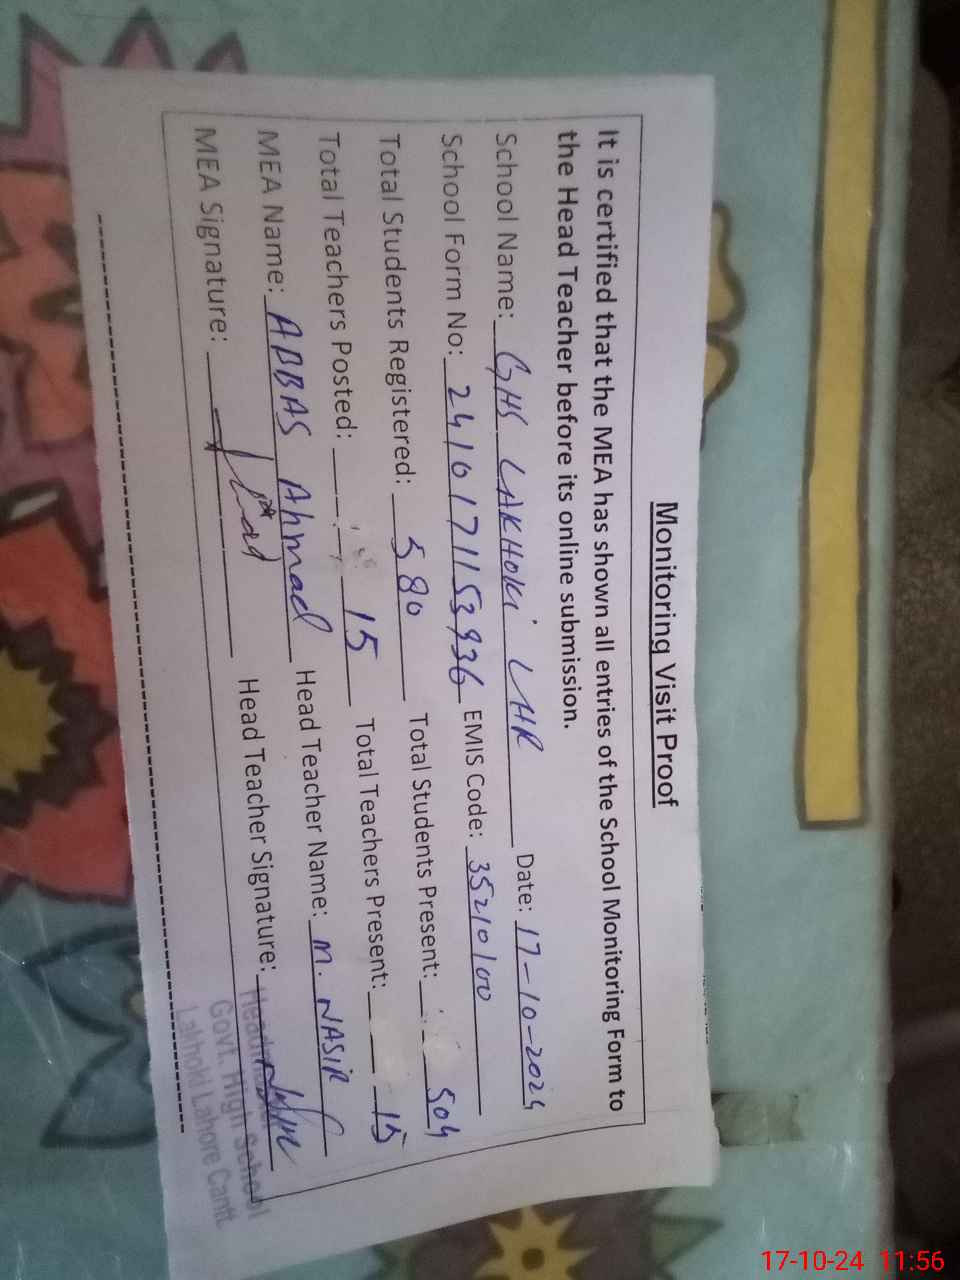 Monitoring Visit Proof
It is certified that the MEA has shown all entries of the School Monitoring Form to
the Head Teacher before its online submission.
School Name: GHS LAKHOKI LHR Date: 17-10-2024
School Form No: 2410171153936 EMIS Code: 35210100
Total Students Registered: 580 Total Students Present: 504
Total Teachers Posted: 15 Total Teachers Present: 15
MEA Name: ABBAS Ahmad Head Teacher Name: M. NASIR
MEA Signature: Head Teacher Signature:
Govt. High School
Lakhoki Lahore Cantt
17-10-24 11:56